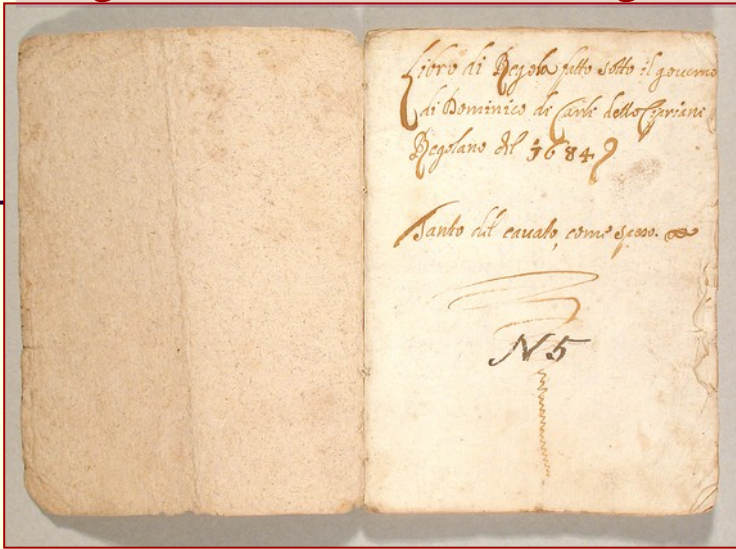 Libro di Regola fatto sotto il governo
di Dominico di Carli detto Cipriani
Regolano del 1684
Tanto del cavato, come speso.
N 5